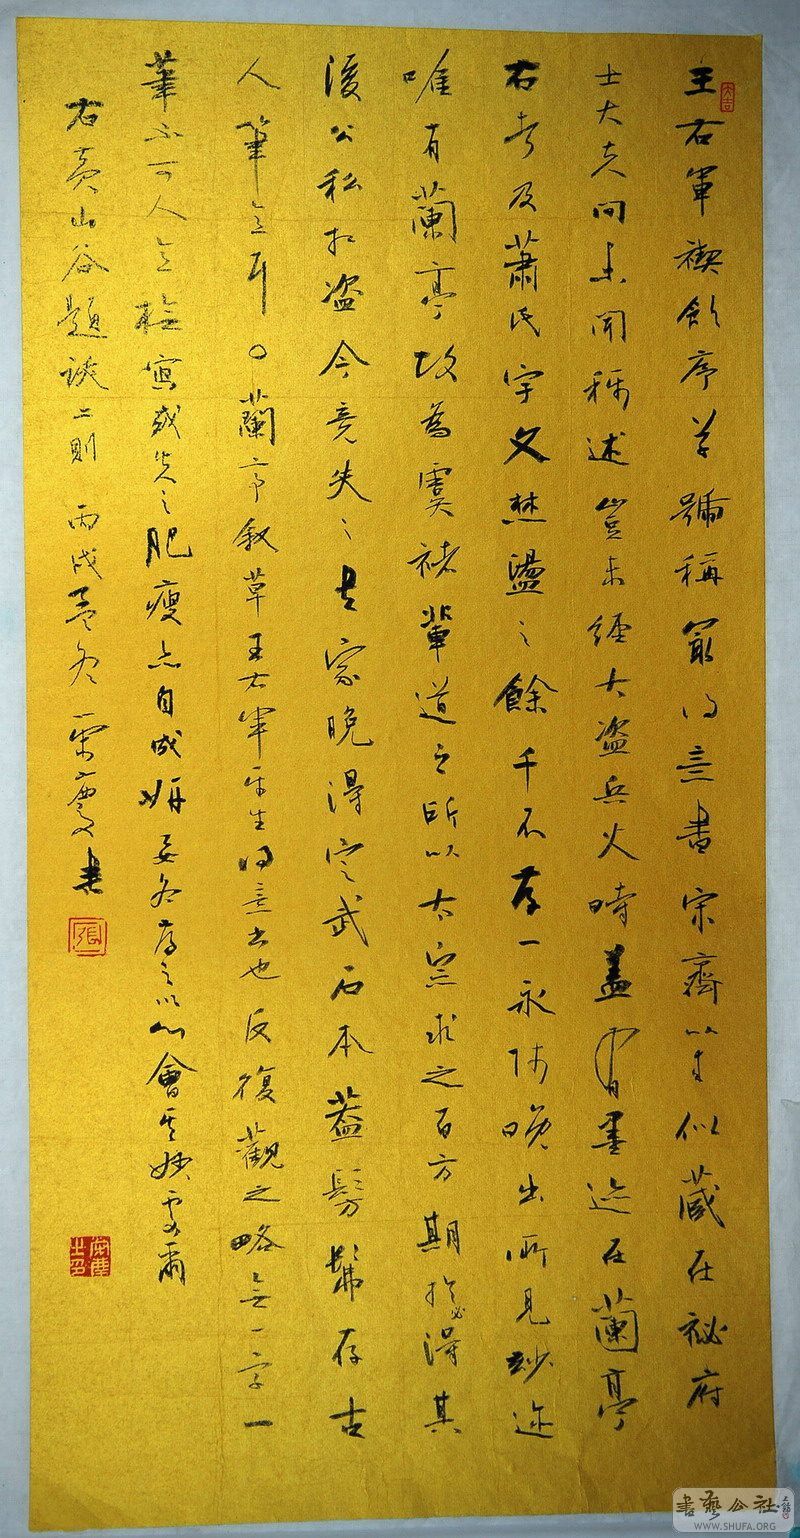 王右軍禊飲序草號稱最得意書宋齊以来似藏在祕府
士大夫間未聞稱述豈未經大盜兵火時蓋有墨迹在蘭亭
右者及蕭氏宇文焚盪之餘千不存一永師晚出所見妙迹
唯有蘭亭故為虞褚輩道之所以太宗求之百方期於必得其
後公私相盜今竟失之書家晚得定武石本蓋髣髴存古
人筆意耳〇蘭亭敘草王右軍平生得意書也反復觀之略無一字一
筆不可人意摹寫或失之肥瘦亦自成妍要各存之以心會其妙處爾
右黃山谷題跋二則 丙戌孟冬 慶書
張
大吉
書藝公社
WWW.SHUFA.ORG